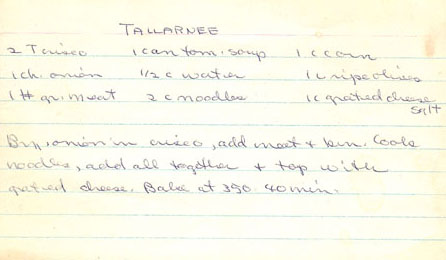 TALLARNEE
2 T crisco 1 can tom. soup 1 c corn
1 ch. onion 1/2 c water 1 c ripe olives
1 # gr. meat 2 c noodles 1 c grated cheese
salt
Brn onion in crisco, add meat + brn. Cook
noodles, add all together + top with
grated cheese. Bake at 350 40 min.